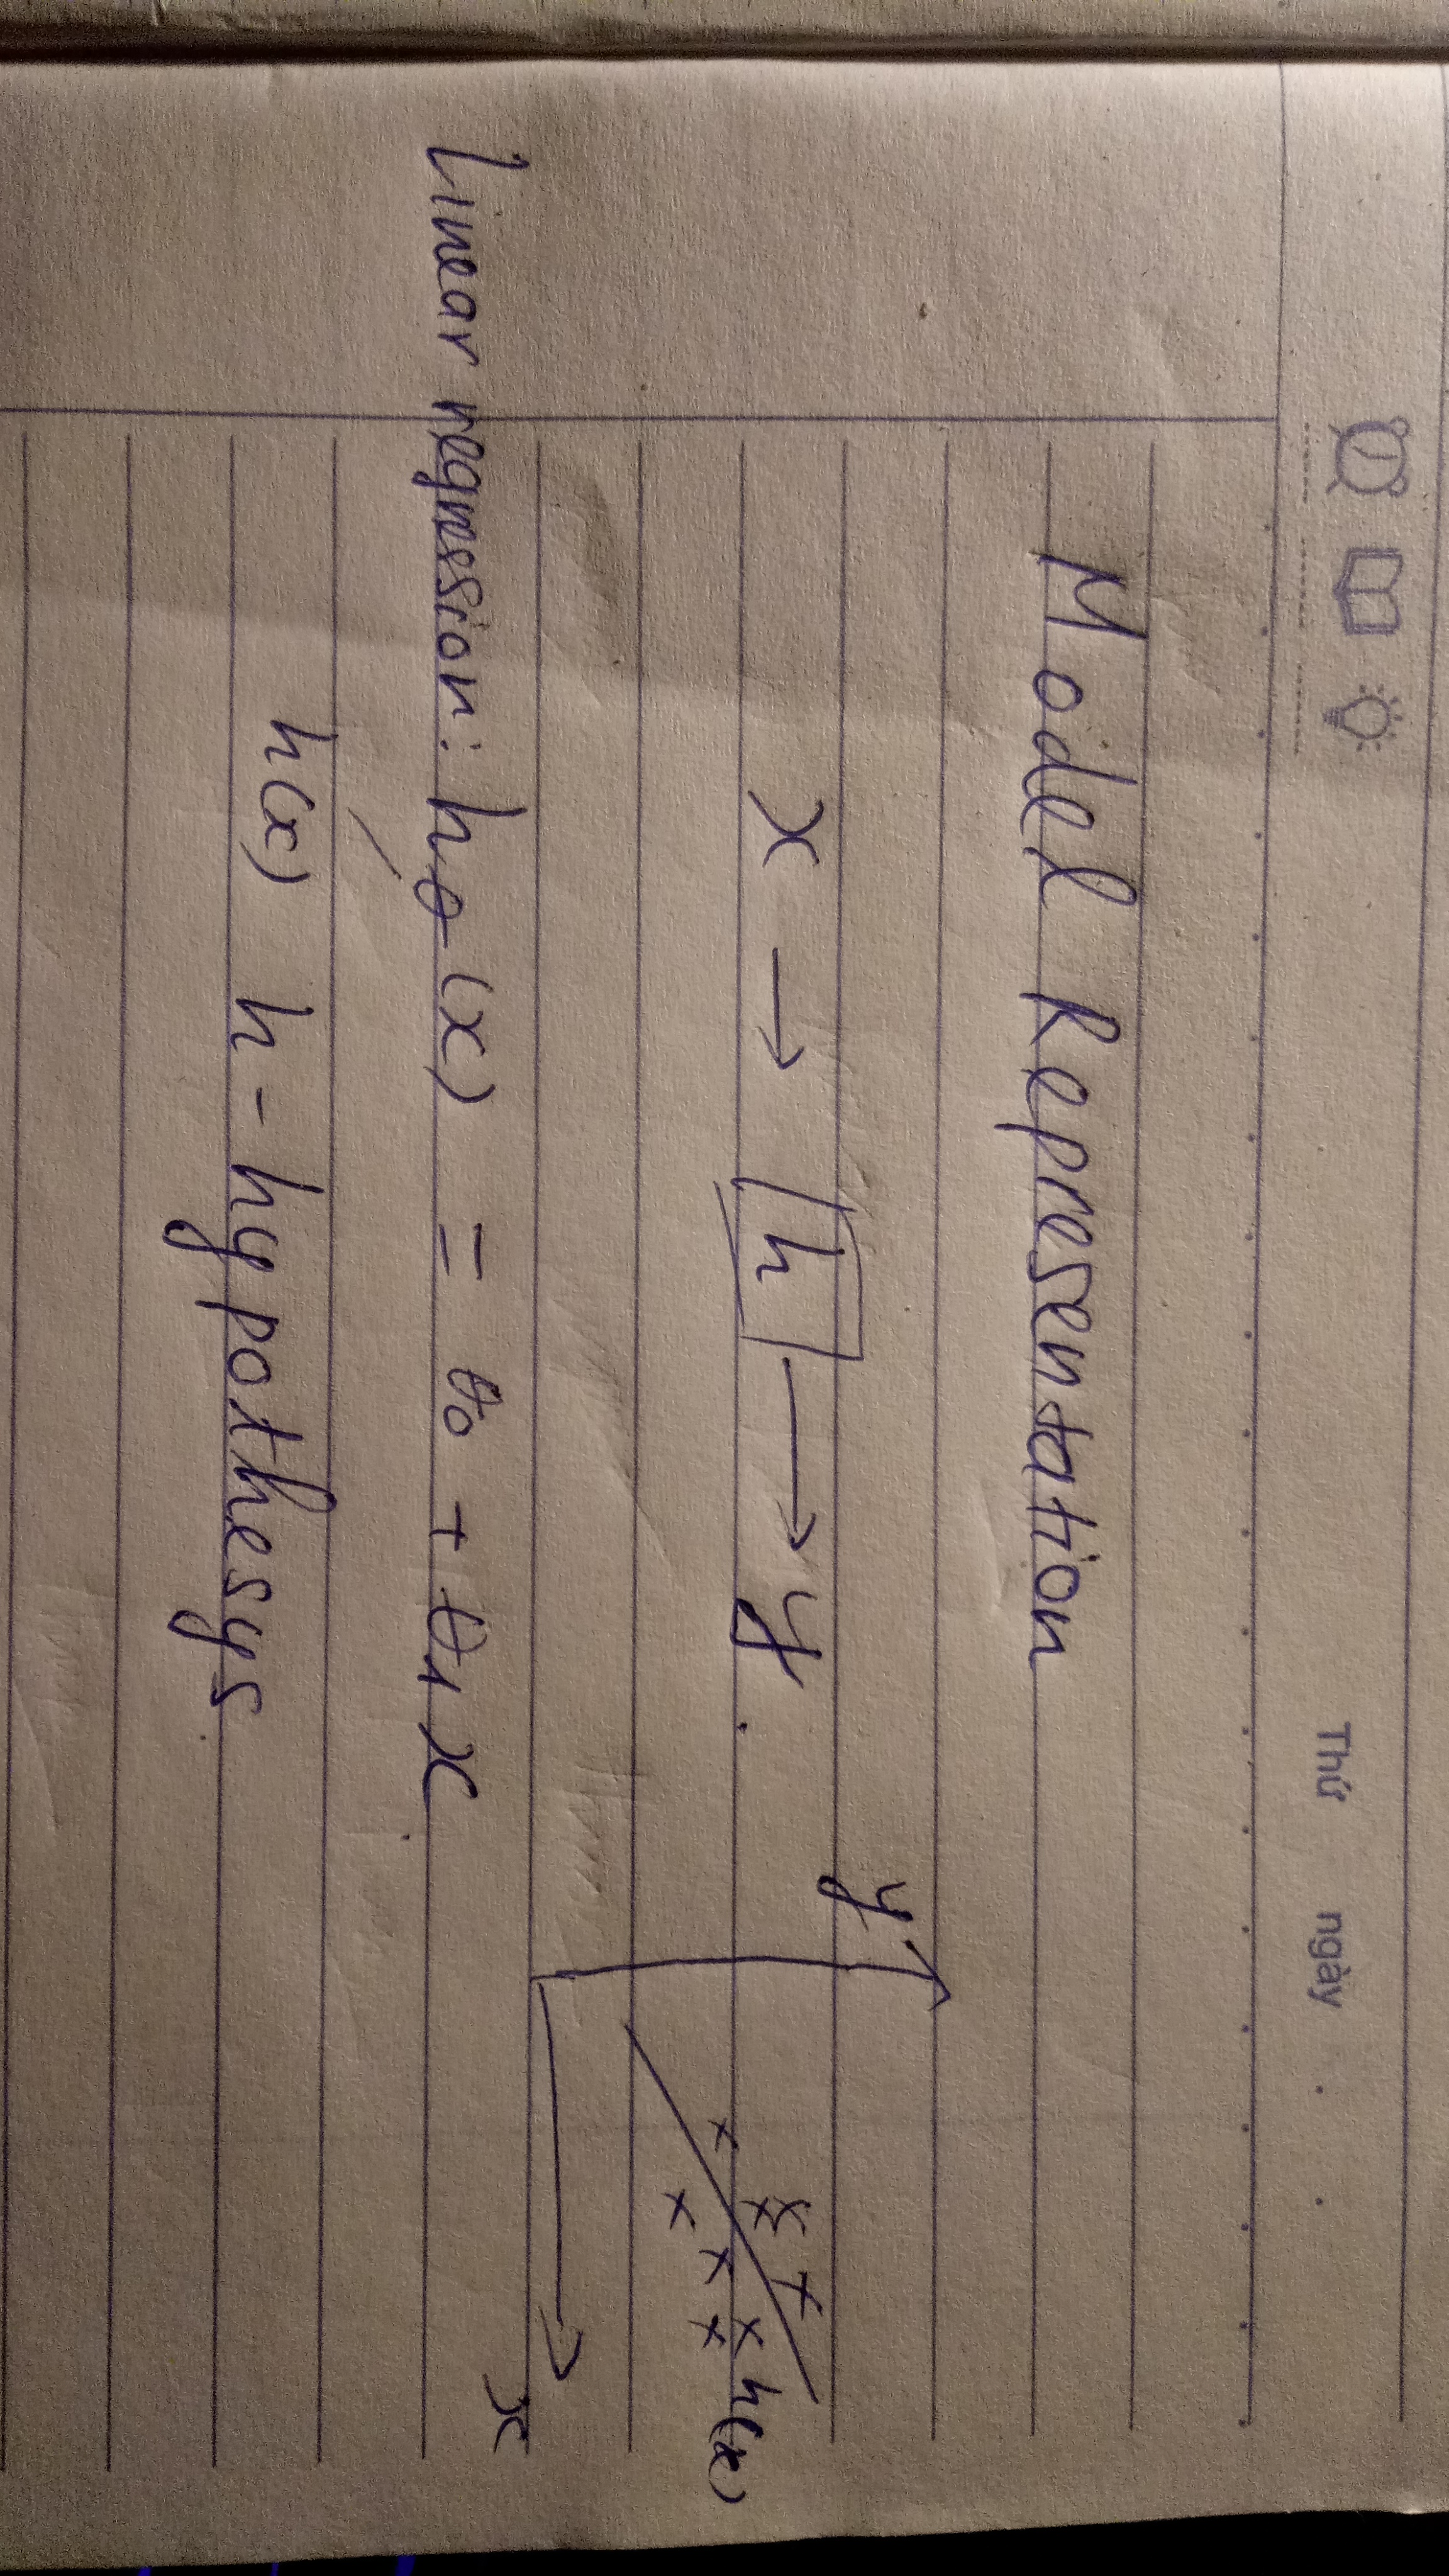 Thứ ngày . .
Model Representation
x → h → y .
y
h(x)
x
Linear regression: hθ (x) = θ0 + θ1 x .
h(x) h - hypothesys .